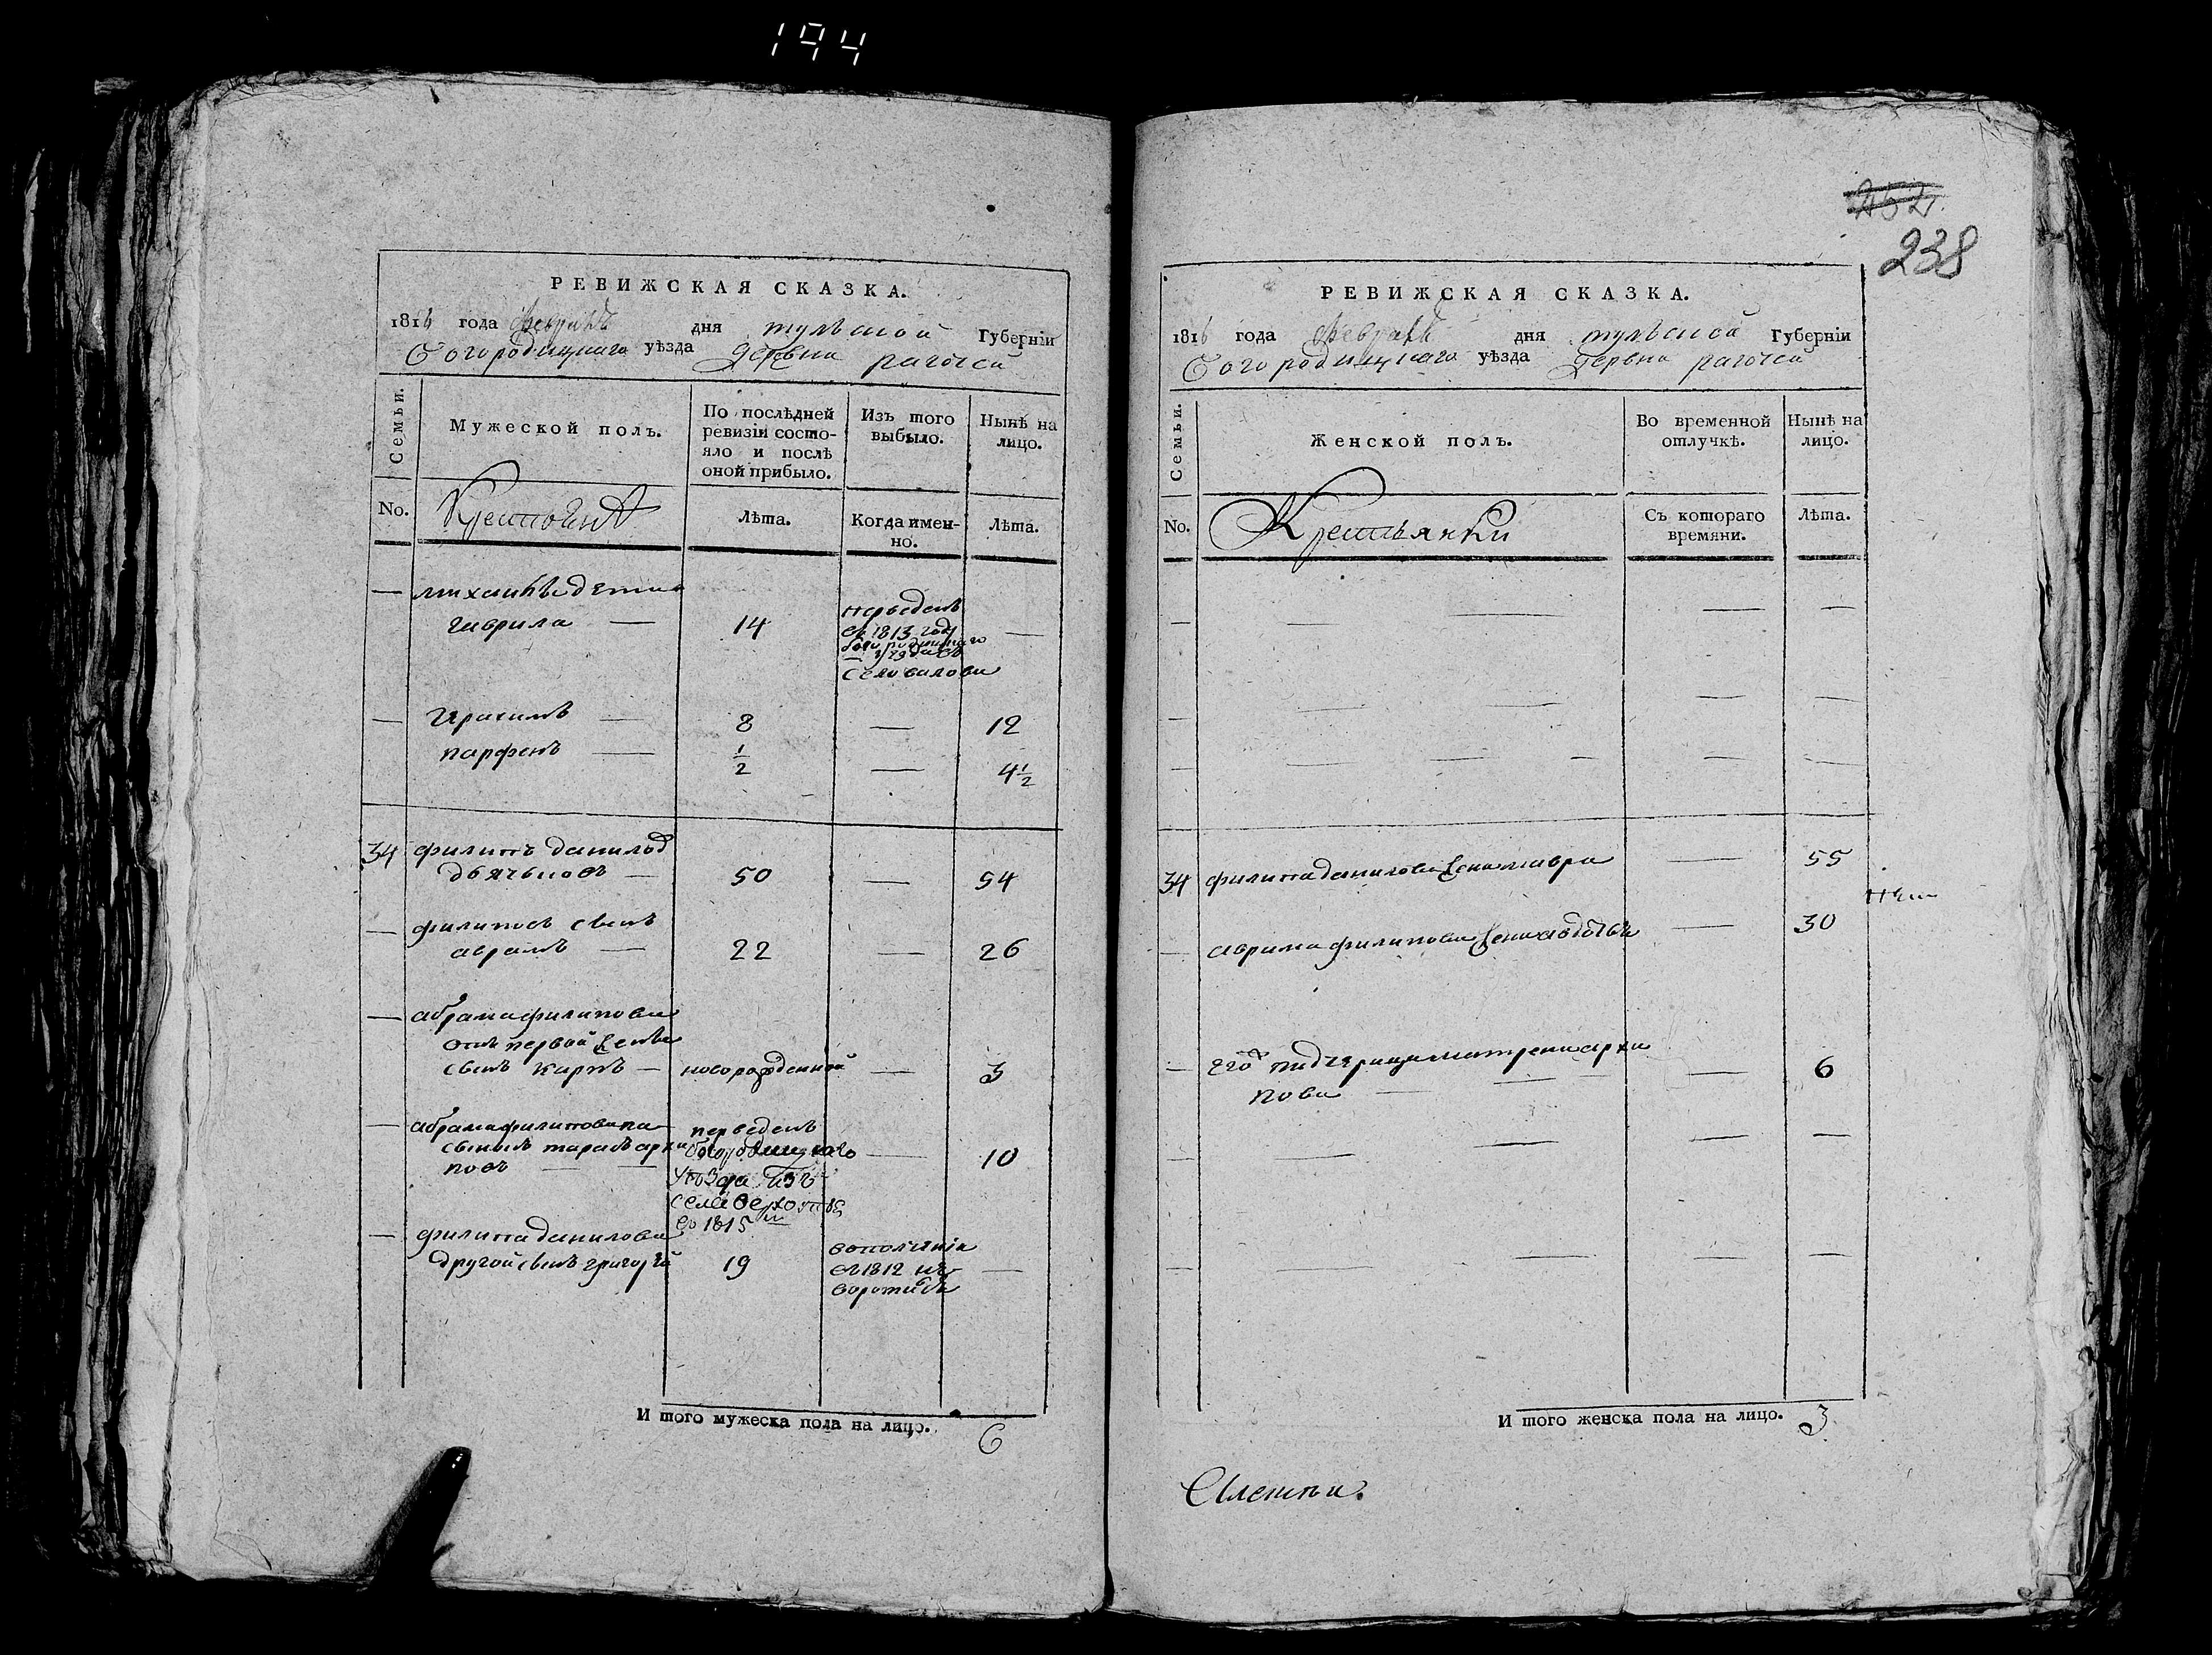 194
РЕВИЖСКАЯ СКАЗКА.
1816 года февраля дня тульской Губерніи
Богородицкаго уѣзда деревни рагочей
Семьи.
Мужеской полъ.
По послѣдней ревизіи состояло и послѣ оной прибыло.
Изъ того выбыло.
Нынѣ на лицо.
No.
Крестьянѣ
Лѣта.
Когда именно.
Лѣта.
— михаилы дети
гаврила — 14 —
переведенъ
въ 1813 году
богородицкаго
уезда въ
село
— герасимъ — 8 — 12
парфенъ — 1/2 — 4 1/2
34 филиппъ данилов
дьячьковъ — 50 — 54
— филиповъ сынъ
аврамъ — 22 — 26
— абрама филипова
отъ первой жены
сынъ карпъ — новорожденной — 3
— абрама филипова па
сынокъ тарасъ архи
повъ — — 10
переведенъ
богородицкаго
уѣзда изъ
села верхоупья
въ 1815м
— филиппа данилова
другой сынъ григорей 19 —
вополчении
въ 1812 не
воротился
И того мужеска пола на лицо. 6
252.
238
РЕВИЖСКАЯ СКАЗКА.
1816 года февраля дня тульской Губерніи
Богородицкаго уѣзда деревни рагочей
Семьи.
Женской полъ.
Во временной отлучкѣ.
Нынѣ на лицо.
No.
Крестьянки
Съ котораго времяни.
Лѣта.
34 филиппа данилова жена мавра — 55
— аврама филипова жена авдотья — 30
— его падчерица матрена архи
пова — — — 6
И того женска пола на лицо. 3